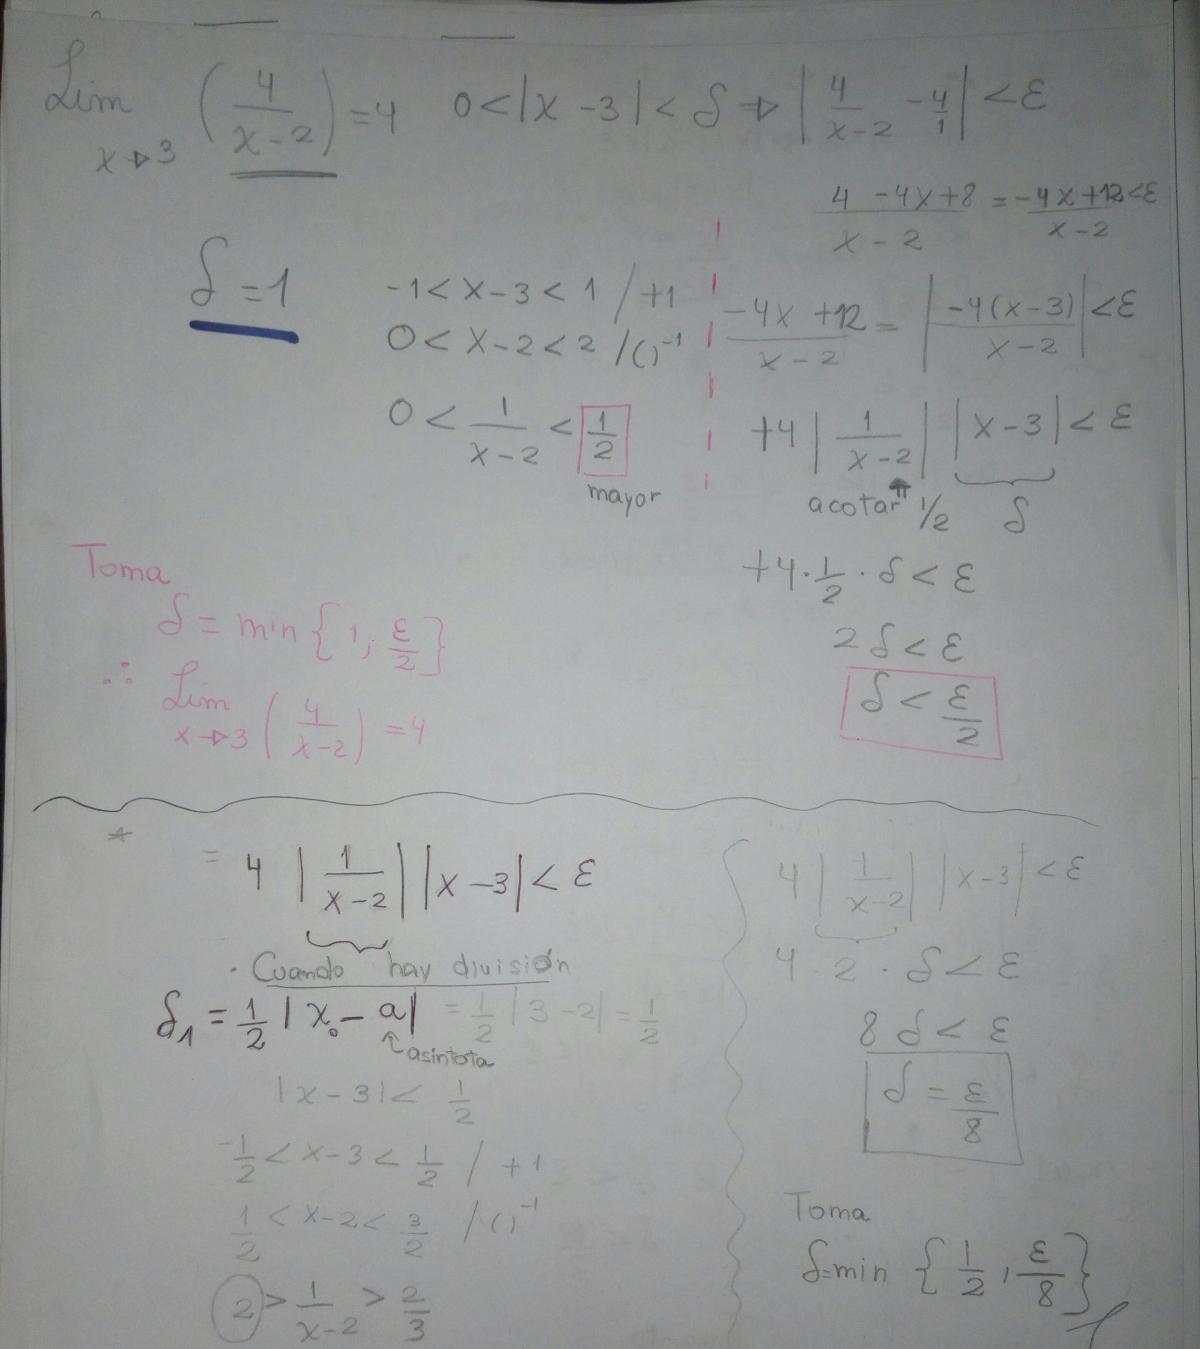 Lim x→3 (4/(x-2)) = 4   0 < |x - 3| < δ ⇒ |4/(x-2) - 4/1| < ε
(4 - 4x + 8)/(x - 2) = (-4x + 12)/(x-2) < ε
δ = 1
-1 < x - 3 < 1 / +1
0 < x - 2 < 2 / ()⁻¹
0 < 1/(x-2) < 1/2
mayor
(-4x + 12)/(x - 2) = |-4(x-3)/(x-2)| < ε
+4 |1/(x-2)| |x - 3| < ε
acotar 1/2   δ
+4 · 1/2 · δ < ε
2δ < ε
δ < ε/2
Toma
δ = min {1, ε/2}
∴ Lim x→3 (4/(x-2)) = 4
* = 4 |1/(x-2)| |x - 3| < ε
· Cuando hay división
δ₁ = 1/2 |x₀ - a| = 1/2 |3 - 2| = 1/2
asintota
|x - 3| < 1/2
-1/2 < x - 3 < 1/2 / +1
1/2 < x - 2 < 3/2 / ()⁻¹
2 > 1/(x-2) > 2/3
4 |1/(x-2)| |x-3| < ε
4 · 2 · δ < ε
8 δ < ε
δ = ε/8
Toma
δ = min {1/2, ε/8}